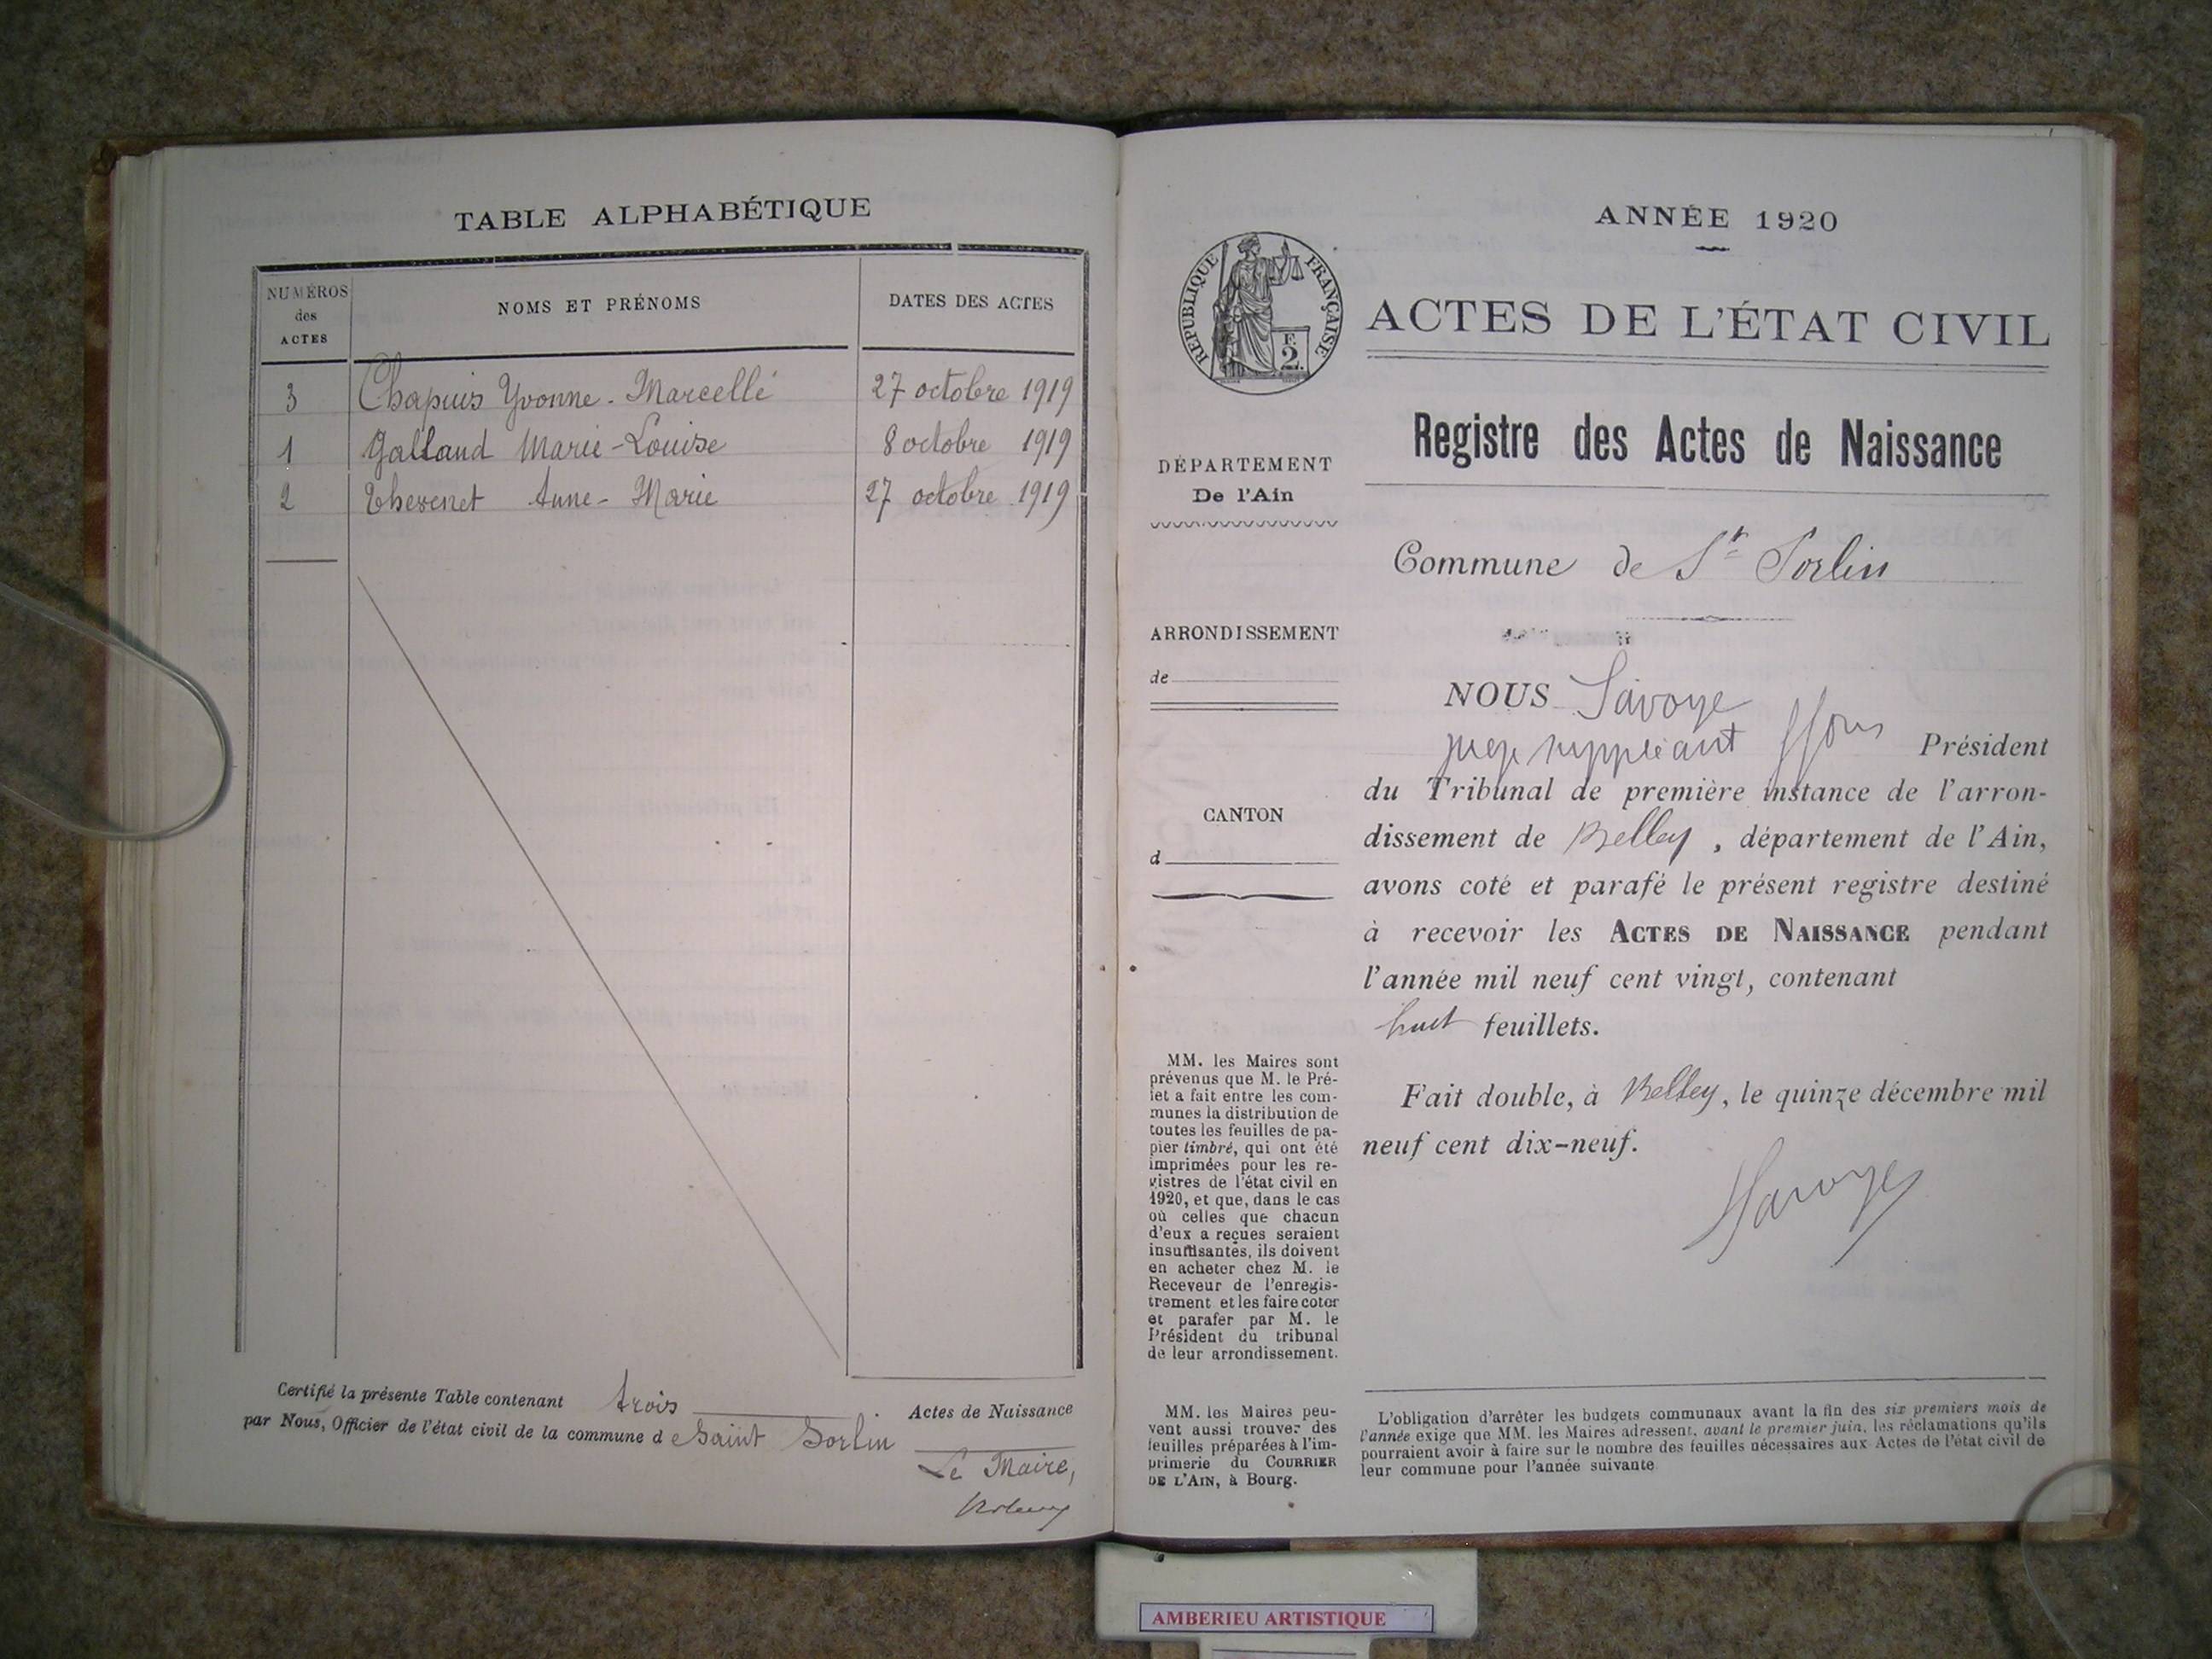 TABLE ALPHABÉTIQUE
NUMÉROS des ACTES
NOMS ET PRÉNOMS
DATES DES ACTES
3 Chapuis Yvonne-Marcelle 27 octobre 1919
1 Galland Marie-Louise 8 octobre 1919
2 Thevenet Anne-Marie 27 octobre 1919
Certifié la présente Table contenant trois Actes de Naissance
par Nous, Officier de l'état civil de la commune d e Saint Sorlin
Le Maire,
ANNÉE 1920
RÉPUBLIQUE FRANÇAISE
F.
2.
ACTES DE L'ÉTAT CIVIL
Registre des Actes de Naissance
DÉPARTEMENT
De l'Ain
Commune de St Sorlin
ARRONDISSEMENT
de
CANTON
d
NOUS Savoye
juge suppléant ffons Président
du Tribunal de première instance de l'arron-
dissement de Belley, département de l'Ain,
avons coté et parafé le présent registre destiné
à recevoir les ACTES DE NAISSANCE pendant
l'année mil neuf cent vingt, contenant
huit feuillets.
Fait double, à Belley, le quinze décembre mil
neuf cent dix-neuf.
Savoye
MM. les Maires sont
prévenus que M. le Pré-
fet a fait entre les com-
munes la distribution de
toutes les feuilles de pa-
pier timbré, qui ont été
imprimées pour les re-
gistres de l'état civil en
1920, et que, dans le cas
où celles que chacun
d'eux a reçues seraient
insuffisantes, ils doivent
en acheter chez M. le
Receveur de l'enregis-
trement et les faire coter
et parafer par M. le
Président du tribunal
de leur arrondissement.
MM. les Maires peu-
vent aussi trouver des
feuilles préparées à l'im-
primerie du COURRIER
DE L'AIN, à Bourg.
L'obligation d'arrêter les budgets communaux avant la fin des six premiers mois de
l'année exige que MM. les Maires adressent, avant le premier juin, les réclamations qu'ils
pourraient avoir à faire sur le nombre des feuilles nécessaires aux Actes de l'état civil de
leur commune pour l'année suivante
AMBERIEU ARTISTIQUE